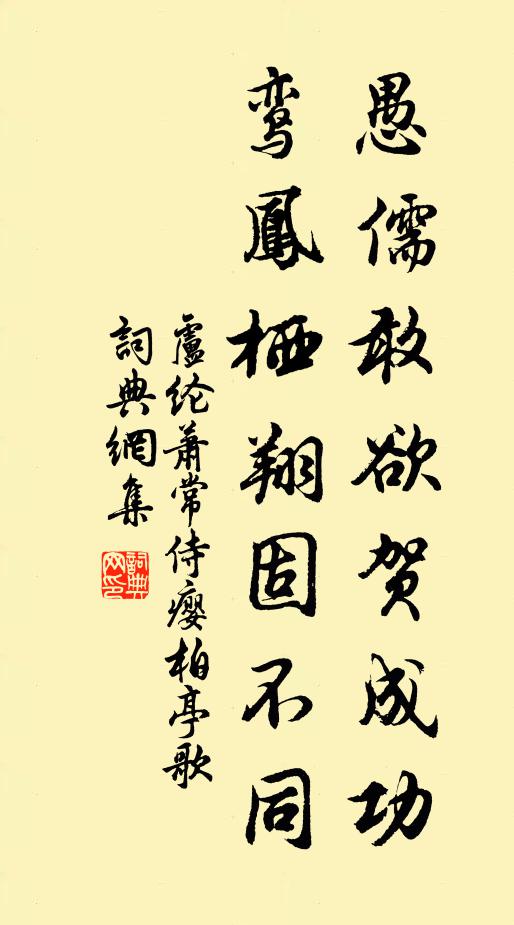 愚儒敢欲贺成功
鸾鳳栖翔固不同
盧纶萧常侍瘿柏亭歌
詞典網集
詞典网印